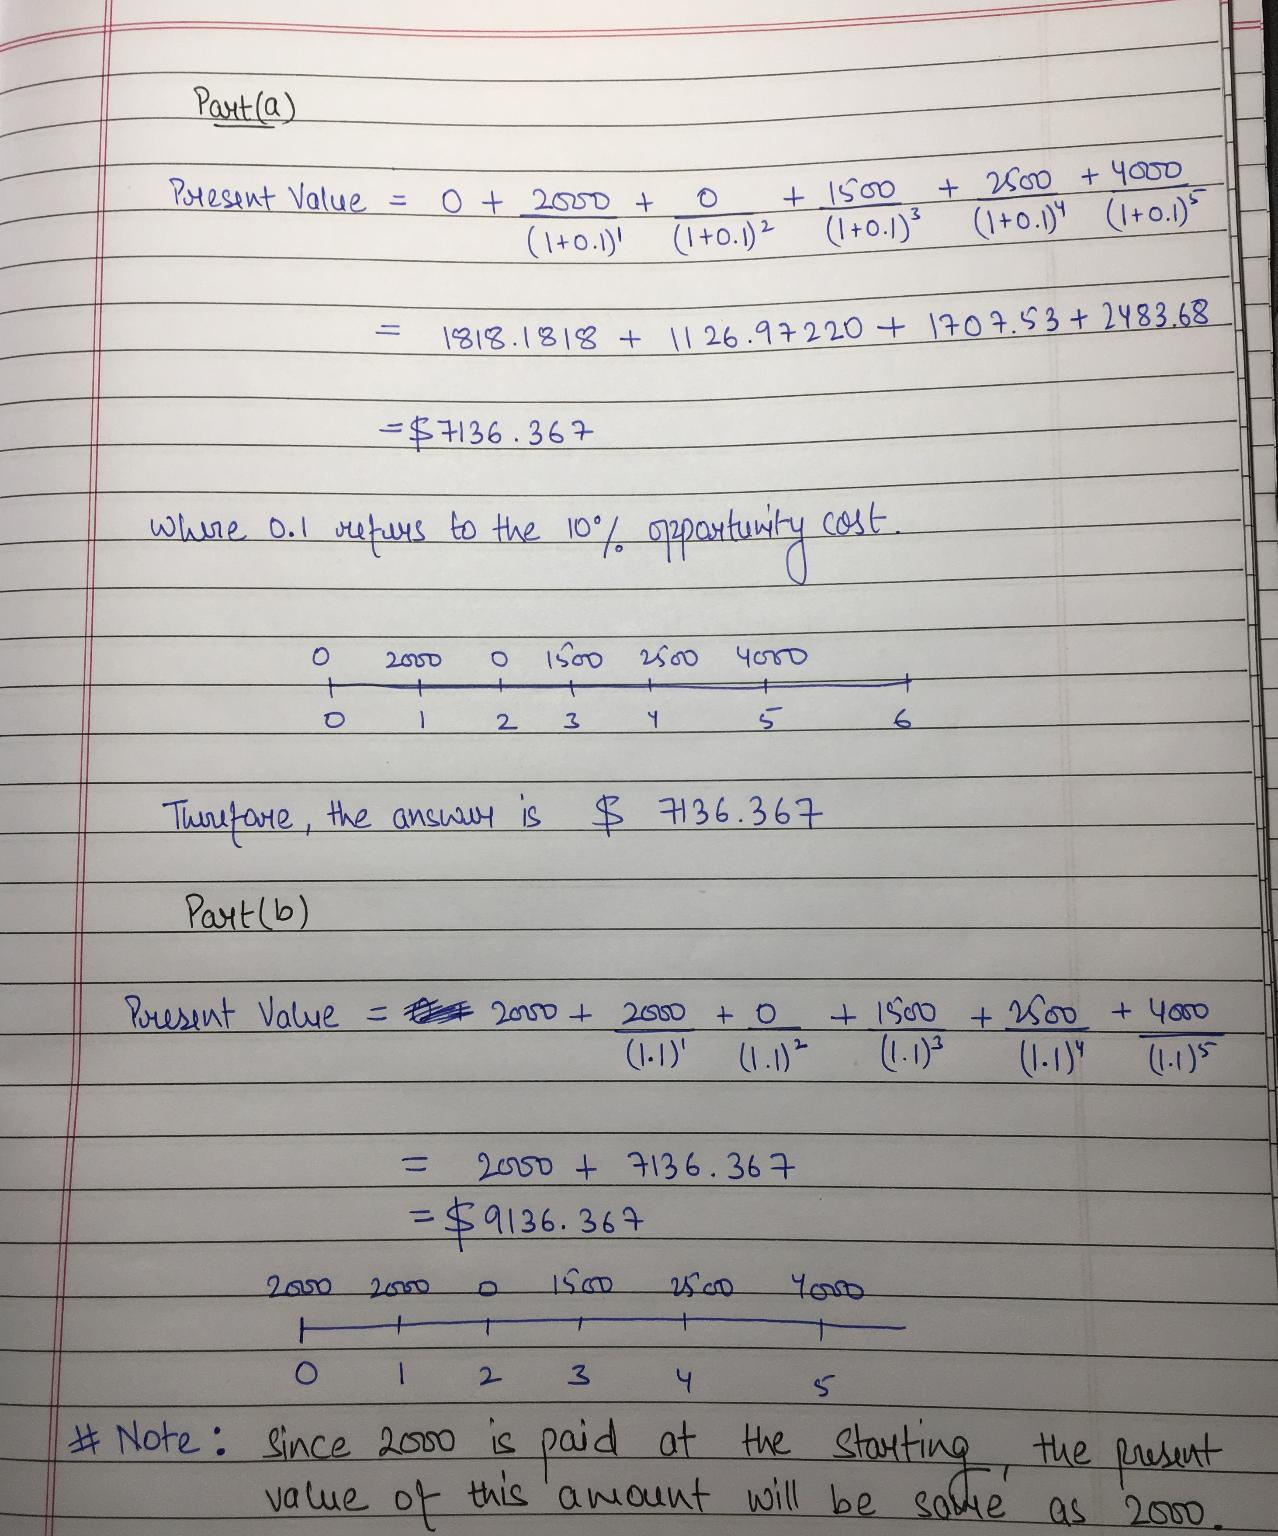 Part(a)
Present Value = 0 + 2000/(1+0.1)¹ + 0/(1+0.1)² + 1500/(1+0.1)³ + 2500/(1+0.1)⁴ + 4000/(1+0.1)⁵
= 1818.1818 + 1126.97220 + 1707.53 + 2483.68
= $7136.367
where 0.1 refers to the 10% opportunity cost.
0 2000 0 1500 2500 4000
0 1 2 3 4 5 6
Therefore, the answer is $ 7136.367
Part(b)
Present Value = 2000 + 2000/(1.1)¹ + 0/(1.1)² + 1500/(1.1)³ + 2500/(1.1)⁴ + 4000/(1.1)⁵
= 2000 + 7136.367
= $9136.367
2000 2000 0 1500 2500 4000
0 1 2 3 4 5
# Note: Since 2000 is paid at the starting, the present
value of this amount will be same as 2000.